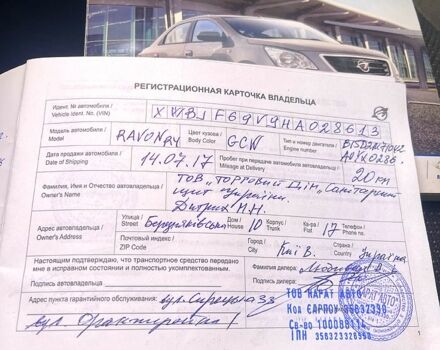 РЕГИСТРАЦИОННАЯ КАРТОЧКА ВЛАДЕЛЬЦА
Идент. № автомобиля / Vehicle Ident. No. (VIN) XWBJF69V9HA028613
Модель автомобиля / Model RAVON R4 Цвет кузова / Body Color GCW Тип и номер двигателя / Engine number
Дата продажи автомобиля / Date of Shipping 14.07.17 Пробег при передаче автомобиля владельцу / Mileage at Delivery 20 км
Фамилия, Имя и Отчество автовладельца / Owner's Name ТОВ "Торговий Дім "Санаторний
України.
М.Н.
Адрес автовладельца / Owner's Address Улица / Street Дом / House 10 Корпус / Trunk Кв / Flat 17 Телефон / Phone No.
Почтовый индекс / ZIP Code Город / City Київ. Страна / Country Україна
Настоящим подтверждаю, что транспортное средство передано мне в исправном состоянии и полностью укомплектованным.
Фамилия дилера:
Подпись автовладельца
Подпись дилера:
Адрес пункта гарантийного обслуживания: вул.
ТОВ КАРАТ АВТО
Код ЄДРПОУ 35632330
Св-во 100088114
ІПН
вул. Оранжерейна 1
1